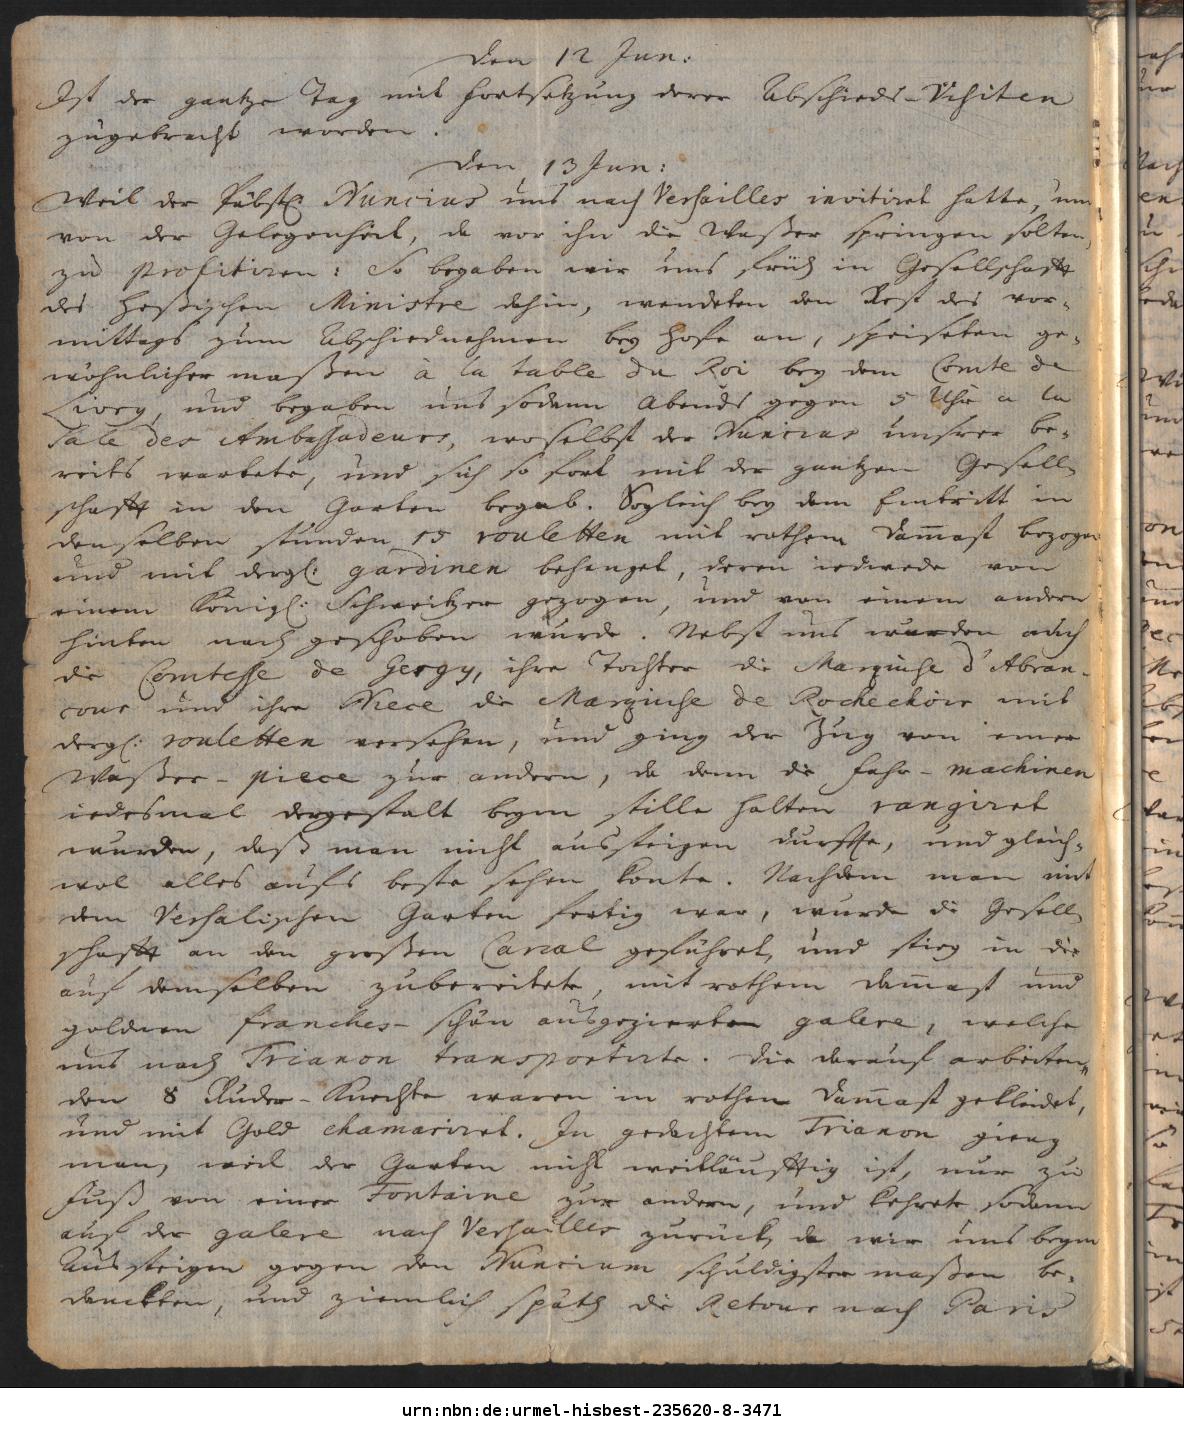 den 12 Jun:
Ist der gantze Tag mit Fortsetzung derer Abschieds-Visiten
zugebracht worden.
den 13 Jun:
Weil der Päbstl. Nuncius uns nach Versailles invitiret hatte, um
von der Gelegenheit, da vor ihn die Waßer springen solten,
zu profitiren: So begaben wir uns früh in Gesellschafft
des Heßischen Ministre dahin, wendeten den Rest des vor-
mittags zum Abschiednehmen bey Hofe an, speiseten ge-
wöhnlicher maßen à la table du Roi bey dem Comte de
Livry, und begaben uns sodann Abends gegen 5 Uhr a la
Sale des Ambassadeurs, woselbst der Nuncius unsrer be-
reits wartete, und sich so fort mit der gantzen Gesell-
schafft in den Garten begab. Sogleich bey dem Eintritt in
demselben stunden 15 rouletten mit rothem Dam̄ast bezogen
und mit dergl: gardinen behenget, deren iedwede von
einem Königl: Schweitzer gezogen, und von einem andern
hinten nach geschoben wurde. Nebst uns wurden auch
die Comtesse de Gergy, ihre Tochter die Marquise d'Abran-
cour und ihre Niece die Marquise de Rochechoir mit
dergl: rouletten versehen, und ging der Zug von einer
Waßer-piece zur andern, da denn die Fahr-machinen
iedesmal dergestalt beym stille halten rangiret
wurden, daß man nicht aussteigen durffte, und gleich-
wol alles aufs beste sehen konte. Nachdem man mit
dem Versalischen Garten fertig war, wurde die Gesell-
schafft an den großen Canal geführet, und stieg in die
auf demselben zubereitete, mit rothem dam̄ast und
goldnen franches schön ausgezierten galere, welche
uns nach Trianon transportirte. Die darauf arbeiten-
den 8 Ruder-Knechte waren in rothen Dam̄ast gekleidet,
und mit Gold chamariret. In gedachtem Trianon gieng
man, weil der Garten nicht weitläufftig ist, nur zu
Fuß von einer Fontaine zur andern, und kehrete sodann
auf der galere nach Versailles zurück, da wir uns beym
Aussteigen gegen den Nuncium schuldigster maßen be-
danckten, und ziemlich späth die Retour nach Paris
urn:nbn:de:urmel-hisbest-235620-8-3471